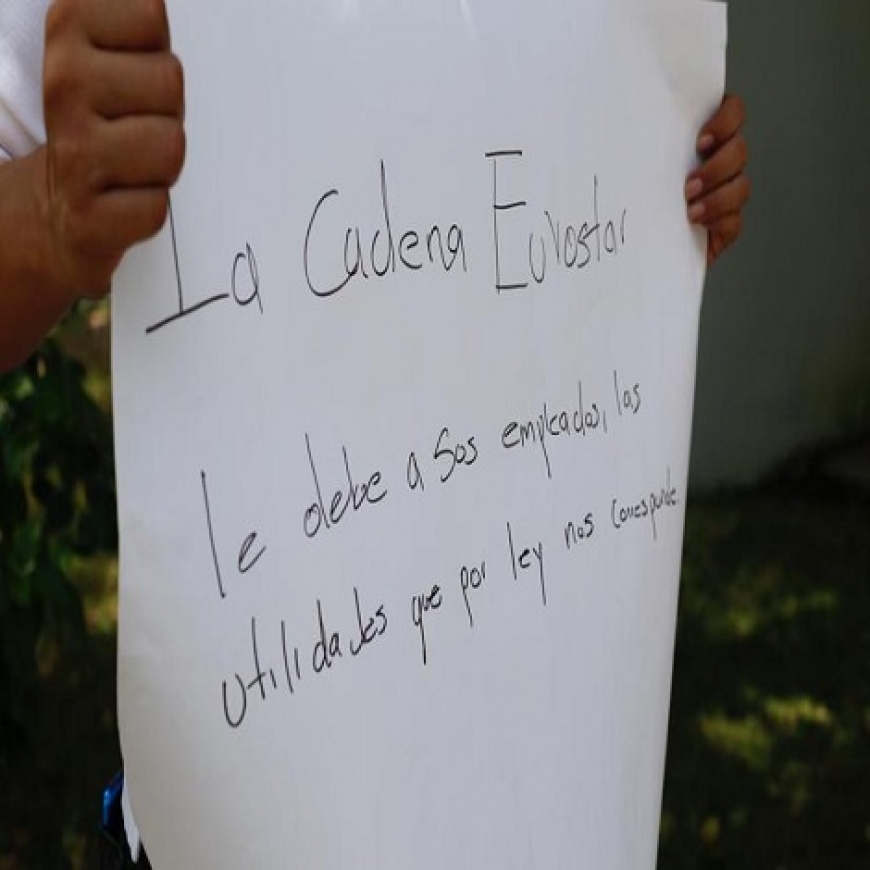 La Cadena Eurostar
le debe a sos empleados, las
utilidades que por ley nos corresponde.